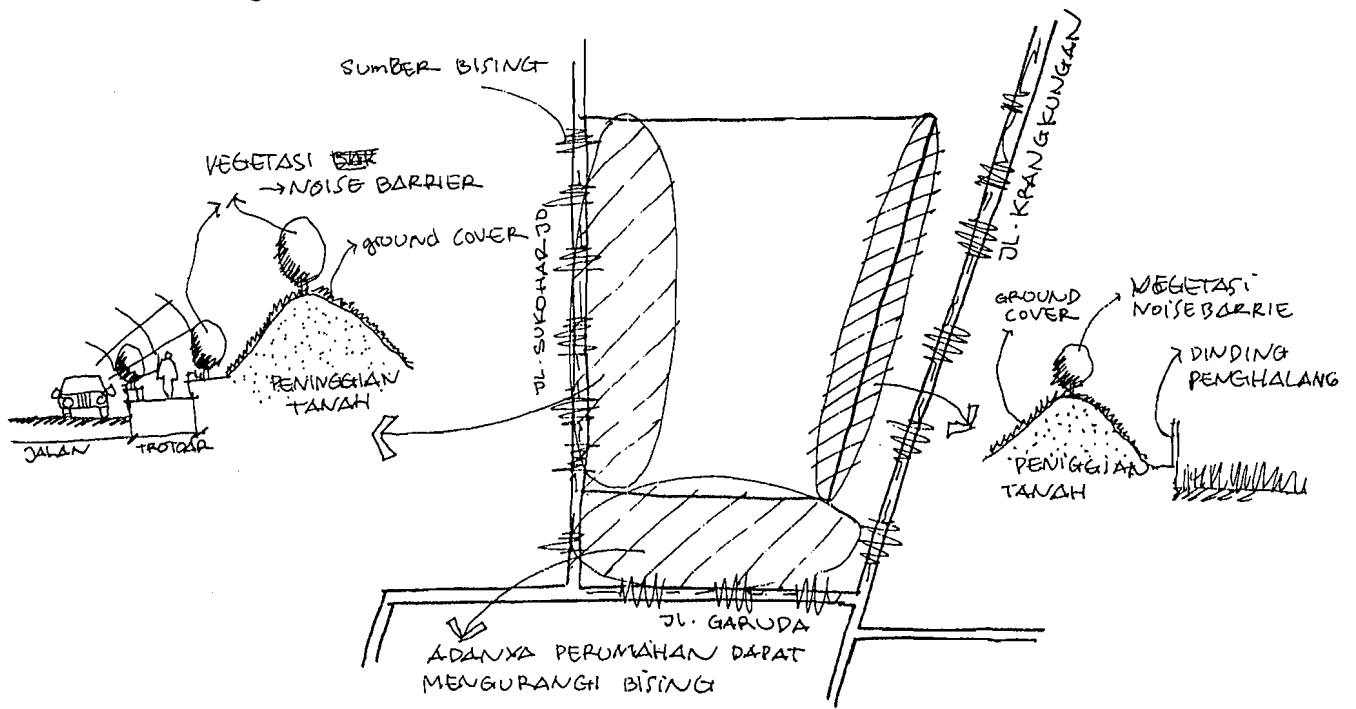 SUMBER BISING
VEGETASI
→ NOISE BARRIER
GROUND COVER
JALAN
TROTOAR
PENINGGIAN
TANAH
JL. SUKOHARJO
JL. KRANGKUNGAN
GROUND
COVER
VEGETASI
NOISE BARRIE
DINDING
PENGHALANG
PENIGGIAN
TANAH
JL. GARUDA
ADANYA PERUMAHAN DAPAT
MENGURANGI BISING